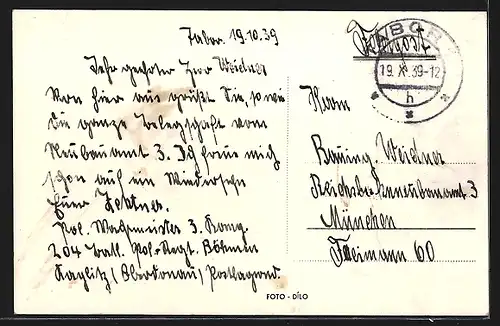 Tabor, 19.10.39
Sehr geehrter Herr Weidner
Von hier aus grüßt Sie, sowie
die ganze Belegschaft vom
Neubauamt 3. Ich freue mich
schon auf ein Wiedersehn
Euer
Pol. Wachtmeister 3. Komp.
204 Batl. Pol.-Regt. Böhmen
Kaplitz (Oberdonau) Postlagernd.
Feldpost
TABOR
19. X. 39-12
h
Herrn
Bauing. Weidner
Neubauamt 3
München
60
FOTO - DÍLO